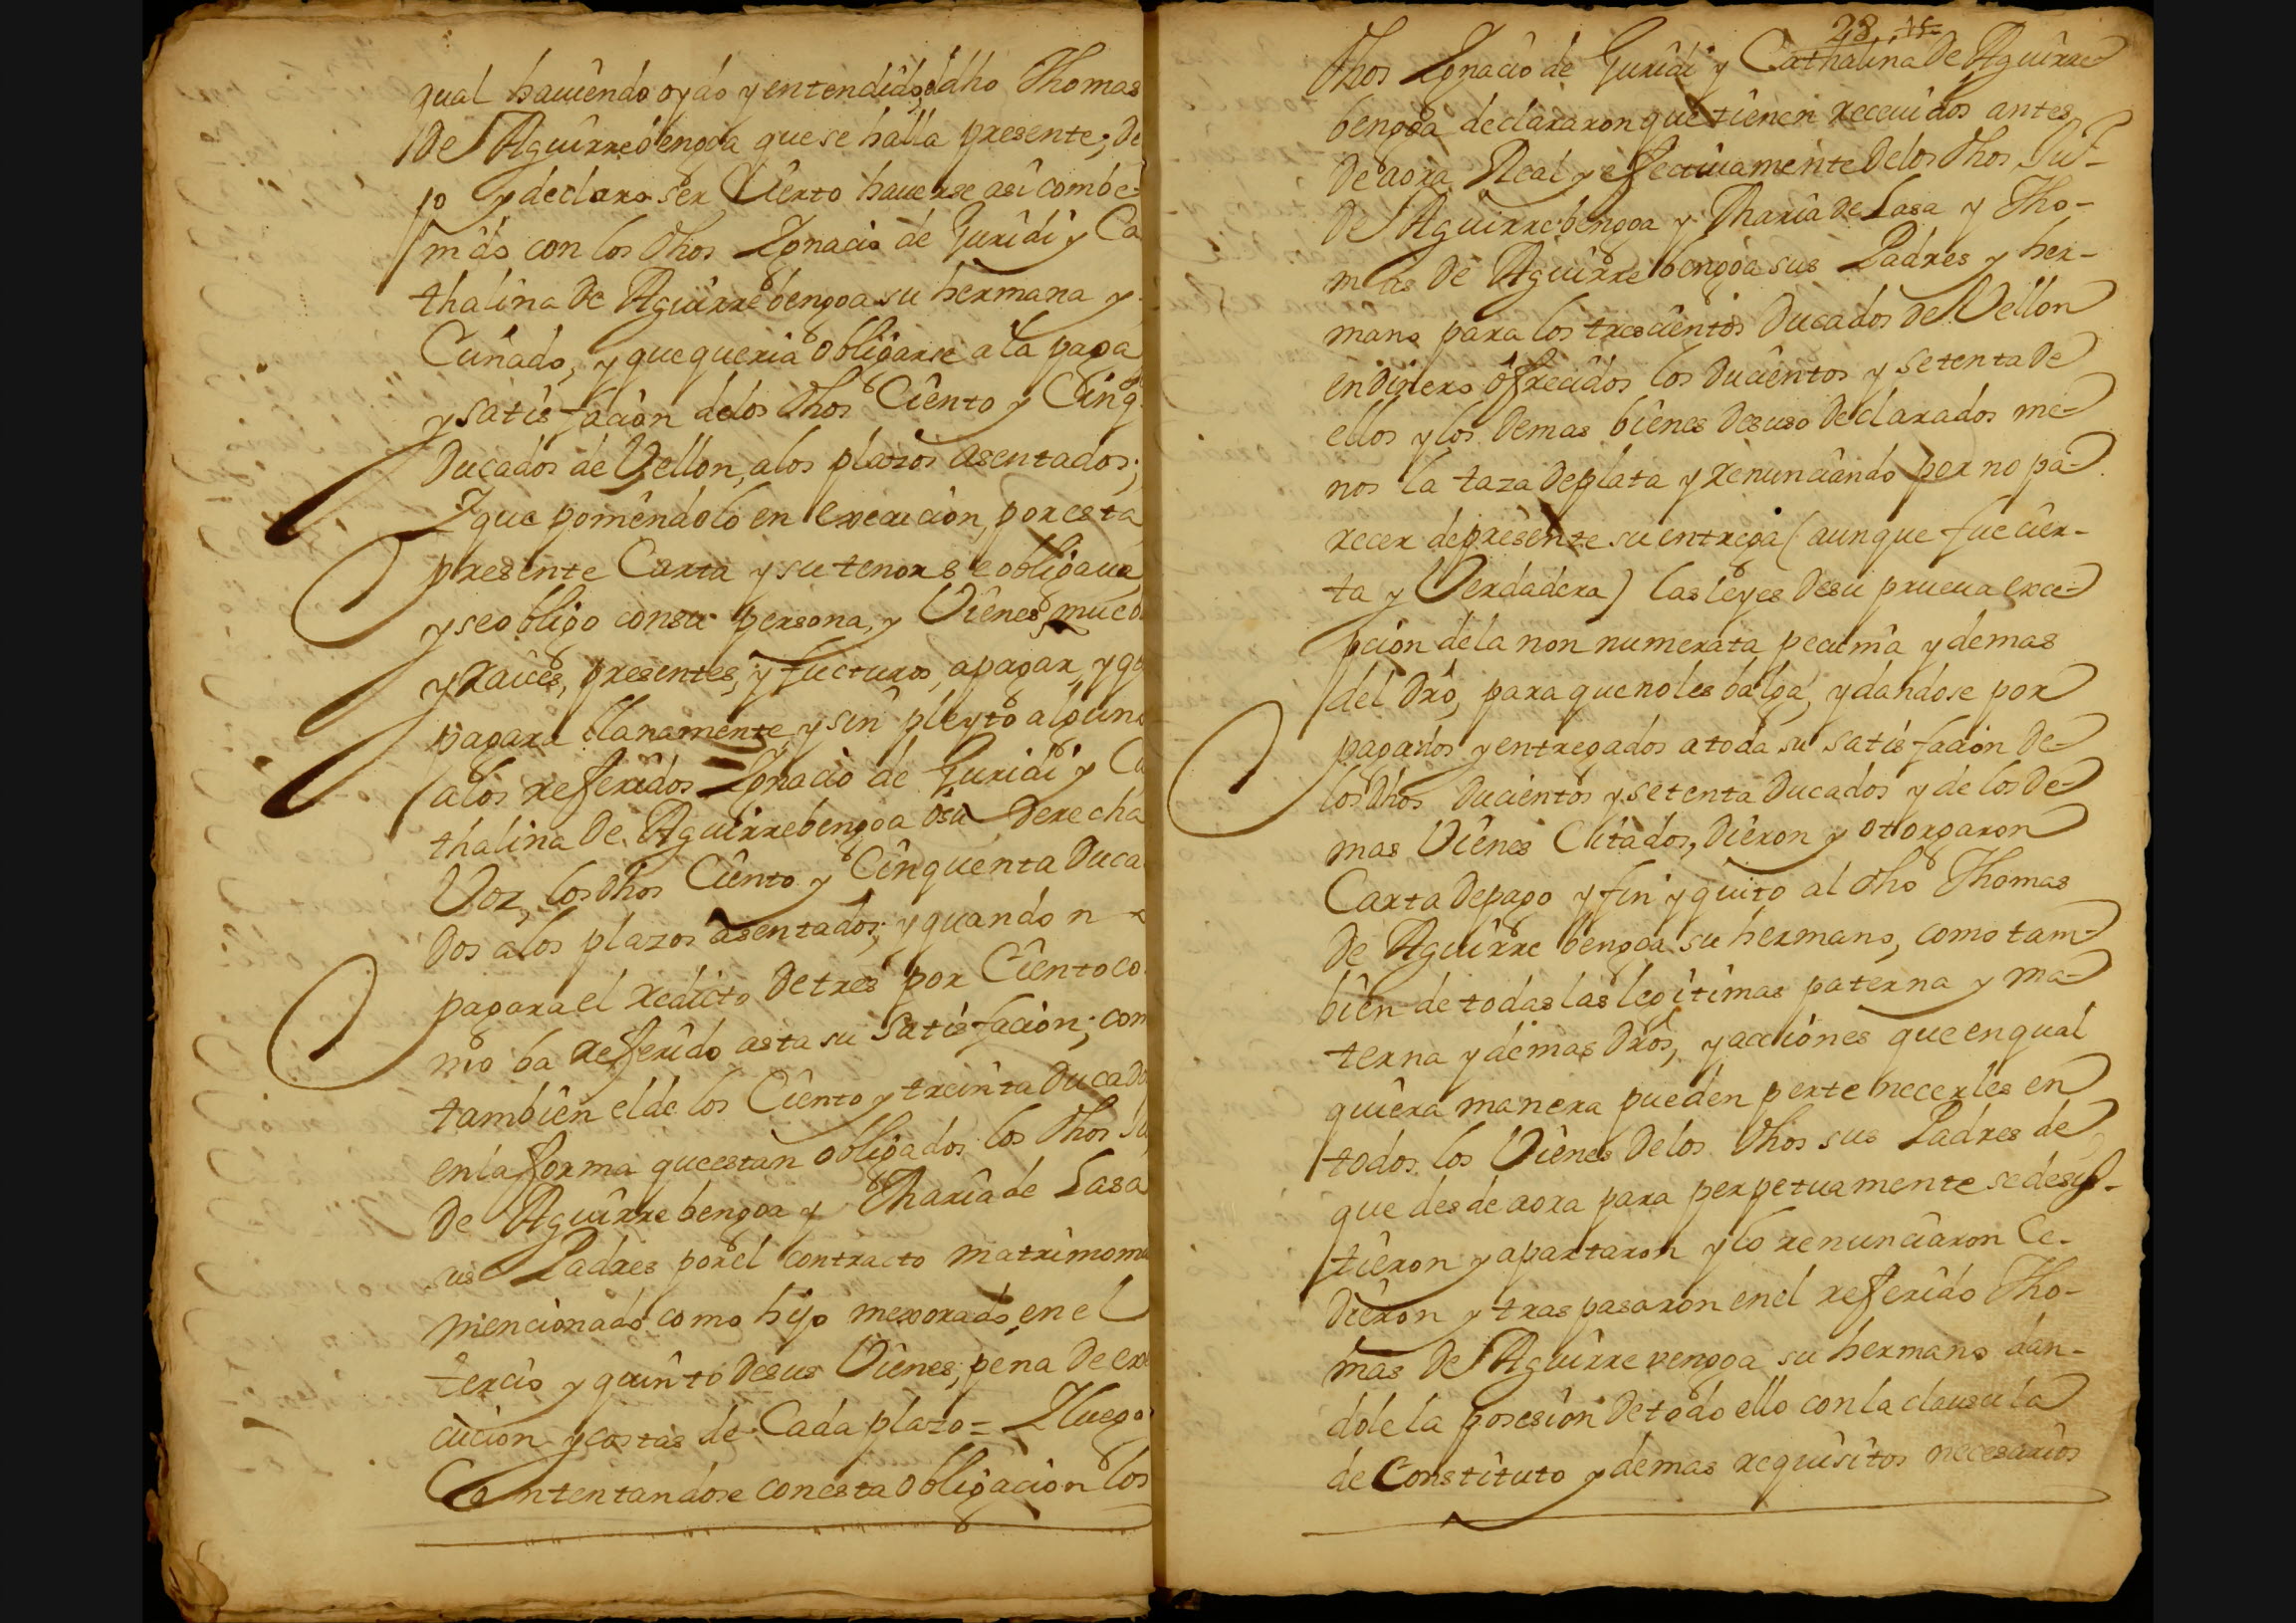 qual hauiendo oydo y entendido, el dho Thomas
De Aguirrebengoa que se halla presente; di
jo y declaro ser Cierto hauerse asi combe-
nido con los dhos Ignacio de Guridi y Ca
thalina De Aguirrebengoa su hermana y
Cuñado, y que queria obligarse a la paga
y satisfacion delos dhos Ciento y Cinq.
Ducados de Vellon, a los plazos asentados;
Y que poniendolo en execucion, por esta
presente Carta y su tenor se obligaua
y se obligo con su persona, y Vienes mueb
y raices, presentes, y fucturos, a pagar, y q
pagara llanamente y sin pleyto alguno
a los refferidos Ignacio de Guridi y Ca
thalina De Aguirrebengoa o su Derecha
Voz, los dhos Ciento y Cinquenta Duca
Dos a los plazos asentados; y quando n
pagara el redicto De tres por Ciento co
mo ba refferido asta su satisfacion; com
tambien el de los Ciento y treinta Ducado
en la forma que estan obligados los dhos Ju
De Aguirrebengoa y Maria de Lasa
sus Padres por el contracto matrimoni
mencionado como hijo mexorado, en el
tercio y quinto De sus Vienes; pena De exe
cucion y costas de Cada plazo = Y luego
Contentandose con esta obligacion los
28 15
dhos Ignacio de Guridi y Cathalina De Aguirre
bengoa declararon que tienen receuidos antes
De aora Real y efectiuamente De los dhos Ju.
De Aguirrebengoa y Maria de Lasa y Tho-
mas De Aguirrebengoa sus Padres y her-
mano para los trescientos Ducados De Vellon
en Dinero ofrecidos los Ducientos y setenta De
ellos y los Demas bienes De suso Declarados me-
nos la taza De plata y renunciando por no pa-
recer de presente su entrega (aunque fue cier-
ta y Verdadera) las leyes De su prueua exce-
pcion de la non numerata pecunia y demas
del Dro, para que no les balga, y dandose por
pagados y entregados a toda su satisfacion De-
los Dhos Ducientos y setenta Ducados y de los De-
mas Vienes Citados, Dieron y otorgaron
Carta De pago y fin y quito al dho Thomas
De Aguirrebengoa su hermano, como tam-
bien de todas las legitimas paterna y ma-
terna y demas Dros, y acciones que en qual
quiera manera pueden pertenecerles en
todos los Vienes De los dhos sus Padres de
que desde aora para perpetuamente se desis-
tieron y apartaron y lo renunciaron Ce-
Dieron y traspasaron en el refferido Tho-
mas De Aguirrevengoa su hermano dan-
dole la posesion De todo ello con la clausula
de Constituto y demas requisitos necesarios